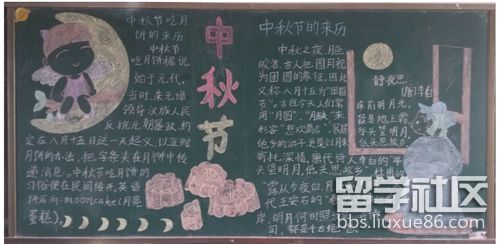 中秋节吃月
饼的来历
中秋节
吃月饼据说
始于元代,
当时,朱元璋
领导汉族人民
反抗元朝暴政,约
定在八月十五日这一天起义,以互赠
月饼的办法,把字条夹在月饼中传
递消息。中秋节吃月饼的
习俗便在民间传开,英语
拼写为:mooncake(月亮
蛋糕)。
中
秋
节
中秋节的来历
中秋之夜,月色
皎洁,古人把圆月视
为团圆的象征,因此
又称八月十五为“团圆
节”。古往今来人们常
用“月圆”、“月缺”来
形容“悲欢离合”,客居
他乡的游子更是以月来
寄托深情,唐代诗人李白的
望明月,低头思故乡
露从今夜白,月
代王安石的
岸,明月何时照
都是千古绝
静夜思
(唐)李白
床前明月光,
疑是地上霜。
举头望明月,
低头思故乡。
留学社区
bbs.liuxue86.com